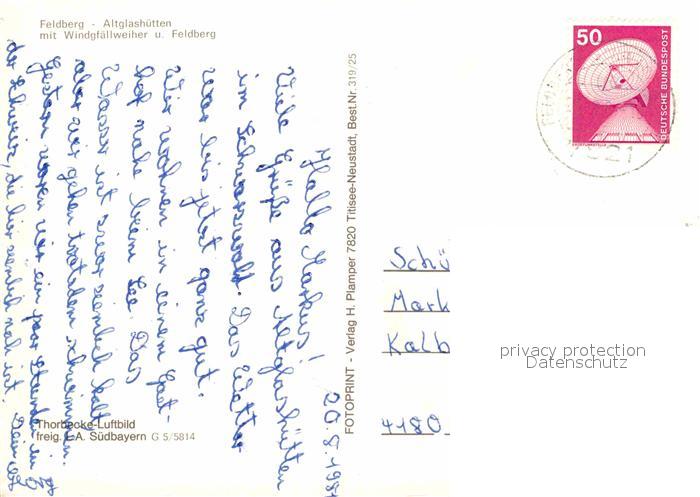 Feldberg - Altglashütten
mit Windgfällweiher u. Feldberg
50
DEUTSCHE BUNDESPOST
7821
20.8.198
Hallo Markus!
Viele Grüße aus Altglashütten
im Schwarzwald. Das Wetter
war bis jetzt ganz gut.
Wir wohnen in einem Gast-
hof nahe beim See. Das
Wasser ist zwar ziemlich kalt
aber wir gehen trotzdem schwimmen.
Gestern waren wir ein paar Stunden in
der Schweiz, die hier ziemlich nah ist. Dein
FOTOPRINT - Verlag H. Plamper 7820 Titisee-Neustadt, Best.Nr. 319/25
Schü
Mark
Kalb
4180
privacy protection
Datenschutz
Thorbecke-Luftbild
freig. I.A. Südbayern G 5/5814